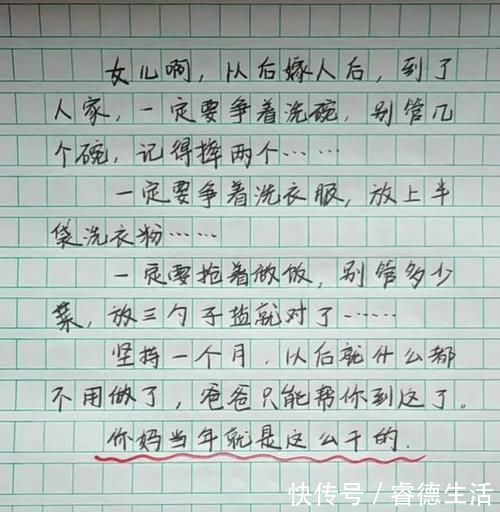 女儿啊，以后嫁人后，到了
人家，一定要争着洗碗，别管几
个碗，记得摔两个……
一定要争着洗衣服，放上半
袋洗衣粉……
一定要抢着做饭，别管多少
菜，放三勺子盐就对了……
坚持一个月，以后就什么都
不用做了，爸爸只能帮你到这了。
你妈当年就是这么干的.
快传号／睿德生活